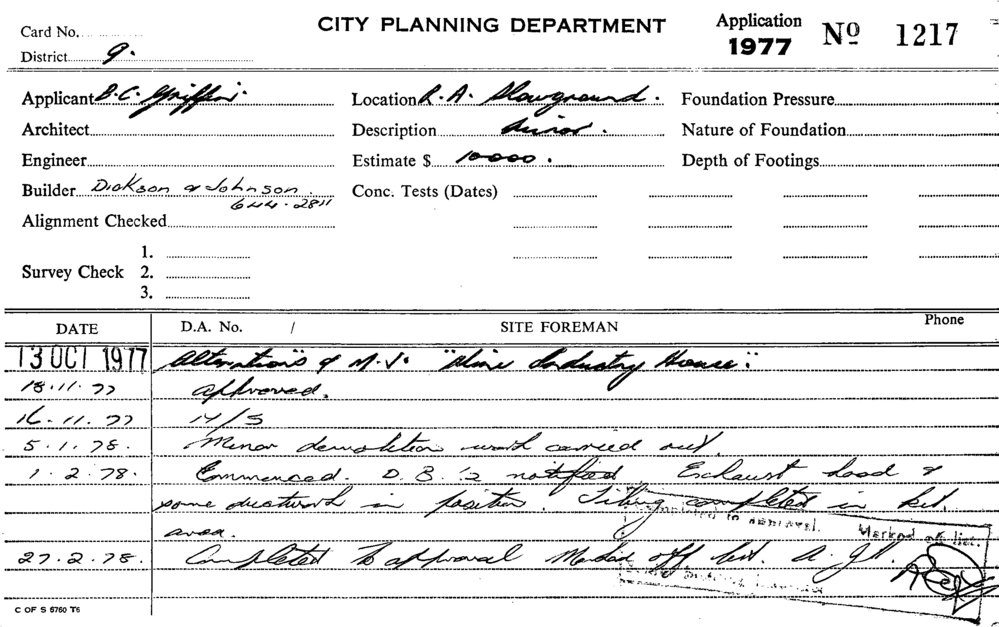 CITY PLANNING DEPARTMENT
Application
1977 Nº 1217
Card No.
District 9.
Applicant B.C. Griffin.
Location R.A. Showground.
Foundation Pressure
Architect
Description Minor.
Nature of Foundation
Engineer
Estimate $ 10000.
Depth of Footings
Builder Dickson & Johnson.
644-2811
Conc. Tests (Dates)
Alignment Checked
Survey Check
1.
2.
3.
DATE D.A. No. / SITE FOREMAN Phone
13 OCT 1977 Alterations & M.V. " Industry House".
18.11.77 approved.
16.11.77 N/S
5.1.78. Minor demolition work carried out.
1.2.78. Commenced. D.B.'s notified Exhaust hood &
some ductwork in position. Tiling completed in kit.
area.
27.2.78. Completed to approval Marked off list.
Completed to approval. Marked off list.
C OF S 5760 T6